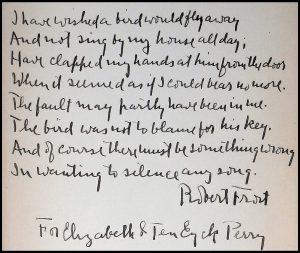 I have wished a bird would fly away
And not sing by my house all day;
Have clapped my hands at him from the door
When it seemed as if I could bear no more.
The fault may partly have been in me.
The bird was not to blame for his key.
And of course there must be something wrong
In wanting to silence any song.
Robert Frost
For Elizabeth & Ten Eyck Perry